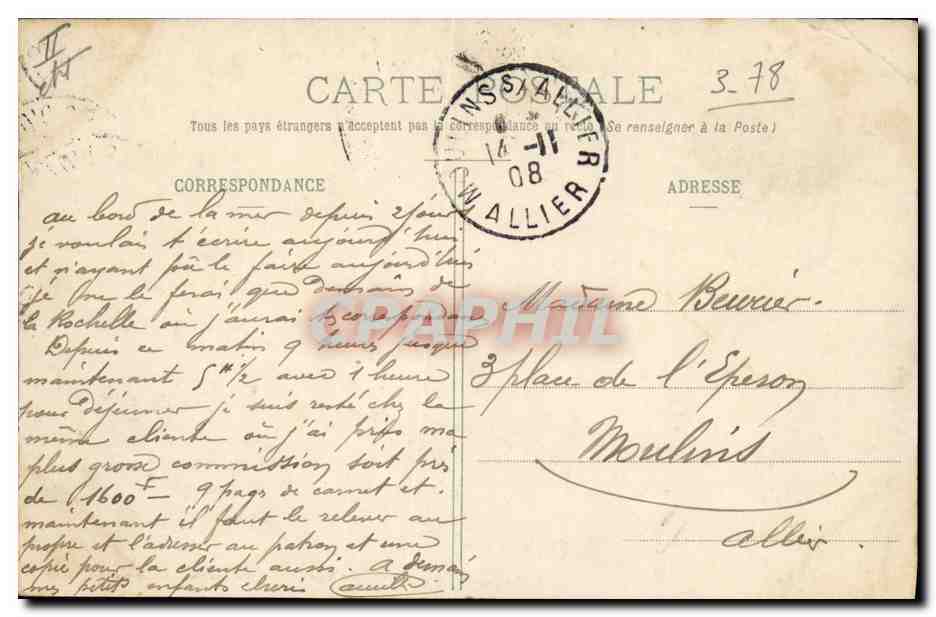 II
3-78
CARTE POSTALE
Tous les pays étrangers n'acceptent pas la correspondance au recto (Se renseigner à la Poste)
MOULINS S/ ALLIER
14 -11
08
ALLIER
CORRESPONDANCE
ADRESSE
au bord de la mer depuis 2 jours
je voulais t'écrire aujourd'hui
et n'ayant pû le faire aujourd'hui
je ne le ferai que demain de
la Rochelle où j'aurai ta correspondan
Depuis ce matin 9 heures jusque
maintenant 5 H 1/2 avec 1 heure
pour Déjeuner je suis resté chez la
même cliente où j'ai pris ma
plus grosse commission soit près
de 1600 F — 9 pages de carnet et
maintenant il faut le relever au
propre et l'adresser au patron et une
copie pour la cliente aussi. A demain
mes petits enfants chéris
Madame Beurier.
3 place de l'Eperon
Moulins
Allier.
CPAPHIL